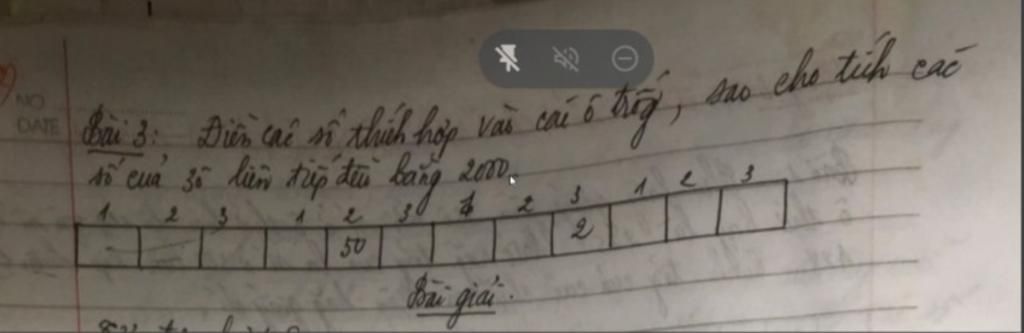 NO
DATE
Bài 3: Điền các số thích hợp vào các ô trống, sao cho tích các
số của 3 ô liên tiếp đều bằng 2000.
1 2 3 1 2 3 1 2 3 1 2 3
50 2
Bài giải.